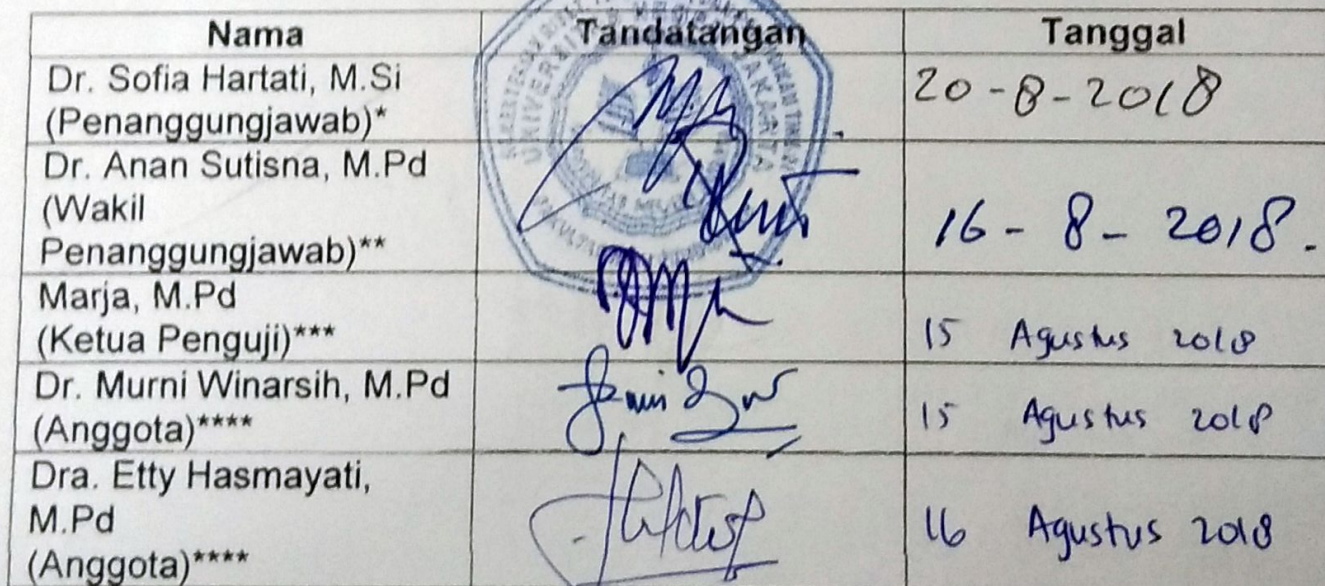 Nama Tandatangan Tanggal
Dr. Sofia Hartati, M.Si 20-8-2018
(Penanggungjawab)*
Dr. Anan Sutisna, M.Pd
(Wakil 16 - 8 - 2018.
Penanggungjawab)**
Marja, M.Pd
(Ketua Penguji)*** 15 Agustus 2018
Dr. Murni Winarsih, M.Pd
(Anggota)**** 15 Agustus 2018
Dra. Etty Hasmayati,
M.Pd 16 Agustus 2018
(Anggota)****